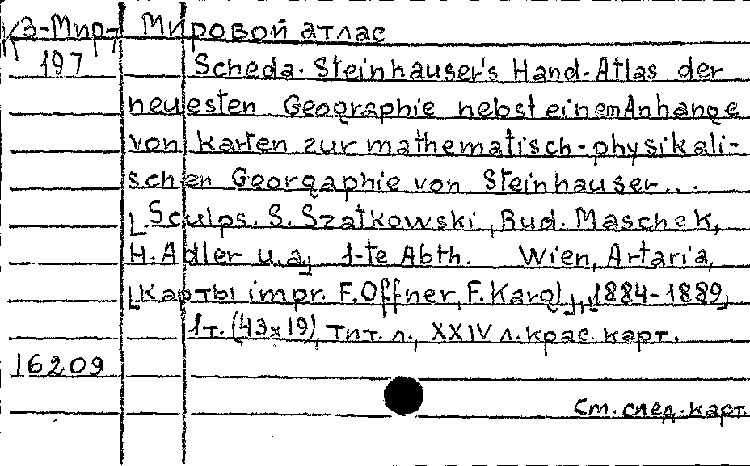 К3-Мир-7 Мировой атлас
197 Scheda-Steinhauser's Hand-Atlas der
neuesten Geographie nebst einem Anhange
von Karten zur mathematisch-physikali-
schen Georgaphie von Steinhauser...
[Sculps. S. Szatkowski, Rud. Maschek,
H. Adler u.a.] 1-te Abth. Wien, Artaria,
[карты impr. F. Offner, F. Kargl], [1884-1889]
1т. (43x19), тит. л., XXIV л. крас. карт.
16209
См. след. карт.